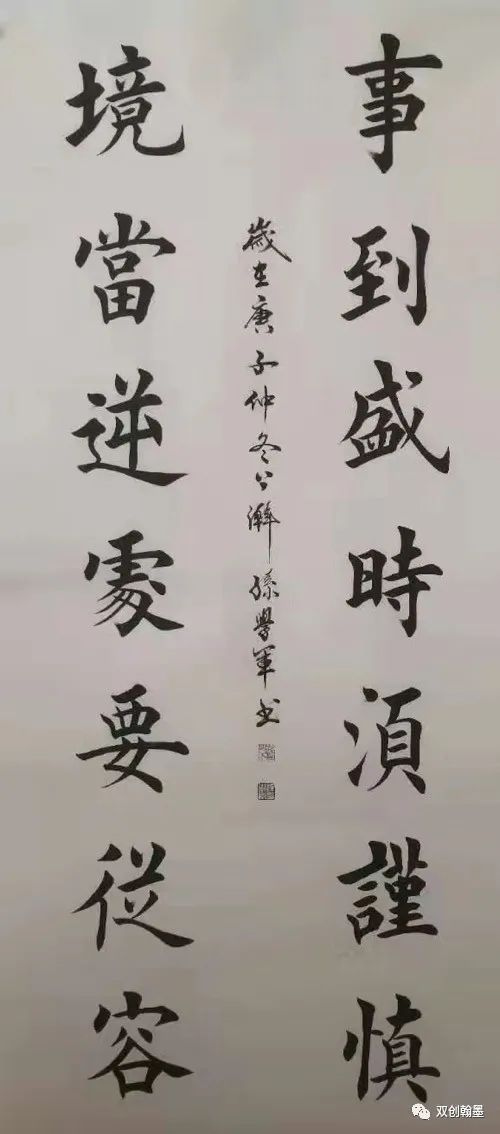 事到盛時湏謹慎
境當逆處要従容
歲在庚子仲冬澣孫學軍書
双创翰墨